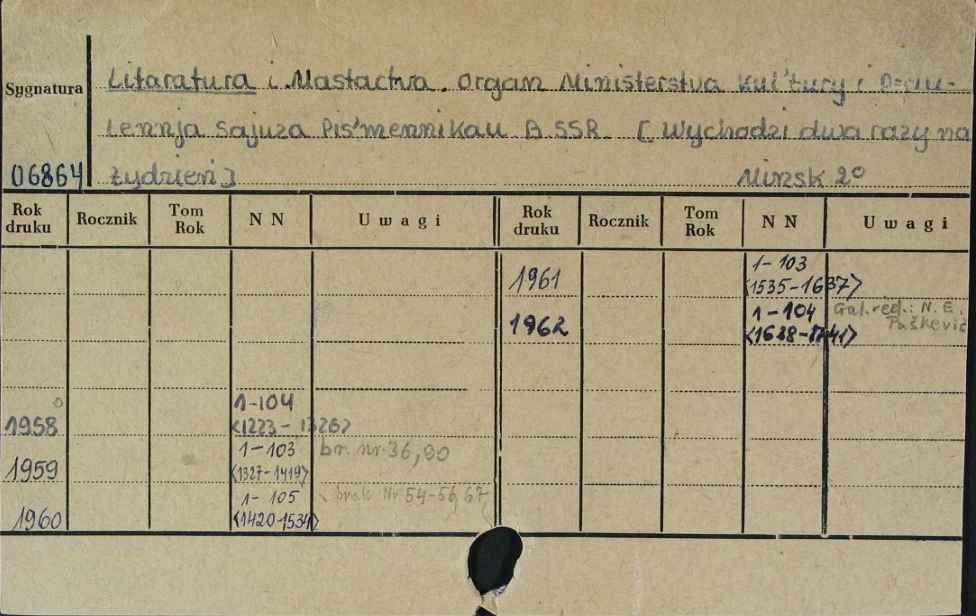 Sygnatura
Litaratura i Mastactva. Organ Ministerstva Kul'tury i
lennja Sajuza Pis'mennikau BSSR. [Wychodzi dwa razy na
06864 tydzień] Minsk 2°
Rok druku Rocznik Tom Rok NN Uwagi Rok druku Rocznik Tom Rok NN Uwagi
1961 1-103
<1535-1637>
1962 1-104 Gal. red.: N. E.
<1638-1741> Paškevič
1958 1-104
<1223-1326>
1959 1-103 br. nr 36, 90
<1327-1419>
1960 1-105 brak Nr 54-56, 67
<1420-1534>